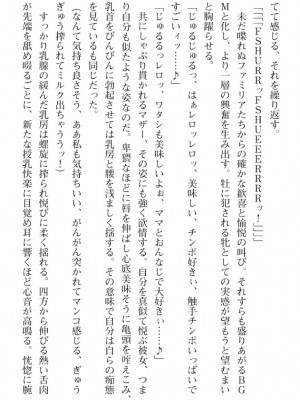 てて感じる、それを繰り返す。
「「「「FSHURRッFSHUEEEERRRRッ！」」」」
未だ喋れぬファミリアたちからの確かな歓喜と愉悦の叫び。それすらも盛りあがるBG
Mと化し、より一層の興奮を生み出す。牡に犯される牝としての実感が望もうまいと望もう
と胸躍らせる。
「じゅるじゅるっ、はぁレロッレロッ、美味しい、チンポ好きぃ、触手チンポいっぱいで
すごいィッ……♪」
「じゅるるっレロッ、ワタシも美味しいよぉ、ママとおんなじで大好きぃ……♪」
共にしゃぶり貫かれるマザー、その姿にも強く欲情する。自分を真似て悦ぶ彼女、つま
り自分も似たような姿なのだ。卑猥なほどに唇を伸ばし心底美味そうに亀頭を咥えこみ、
乳首をびんびんに勃起させては乳房と腰を浅ましく揺する。その意味で自分は自らの痴態
を見ているも同じだった。
（なんて気持ち良さそう、ああ私も気持ちいい、がんがん突かれてマンコ感じる、ぎゅう
ぎゅう搾られてミルク出ちゃううッ！）
すっかり乳腺の緩んだ乳房は螺旋に搾られ悦びに柔く揺れる。四方から伸びる熱い舌肉
が先端を舐めるごとに、新たな授乳快楽に目覚め耳に響くほど心音が高鳴る。恍惚に腕